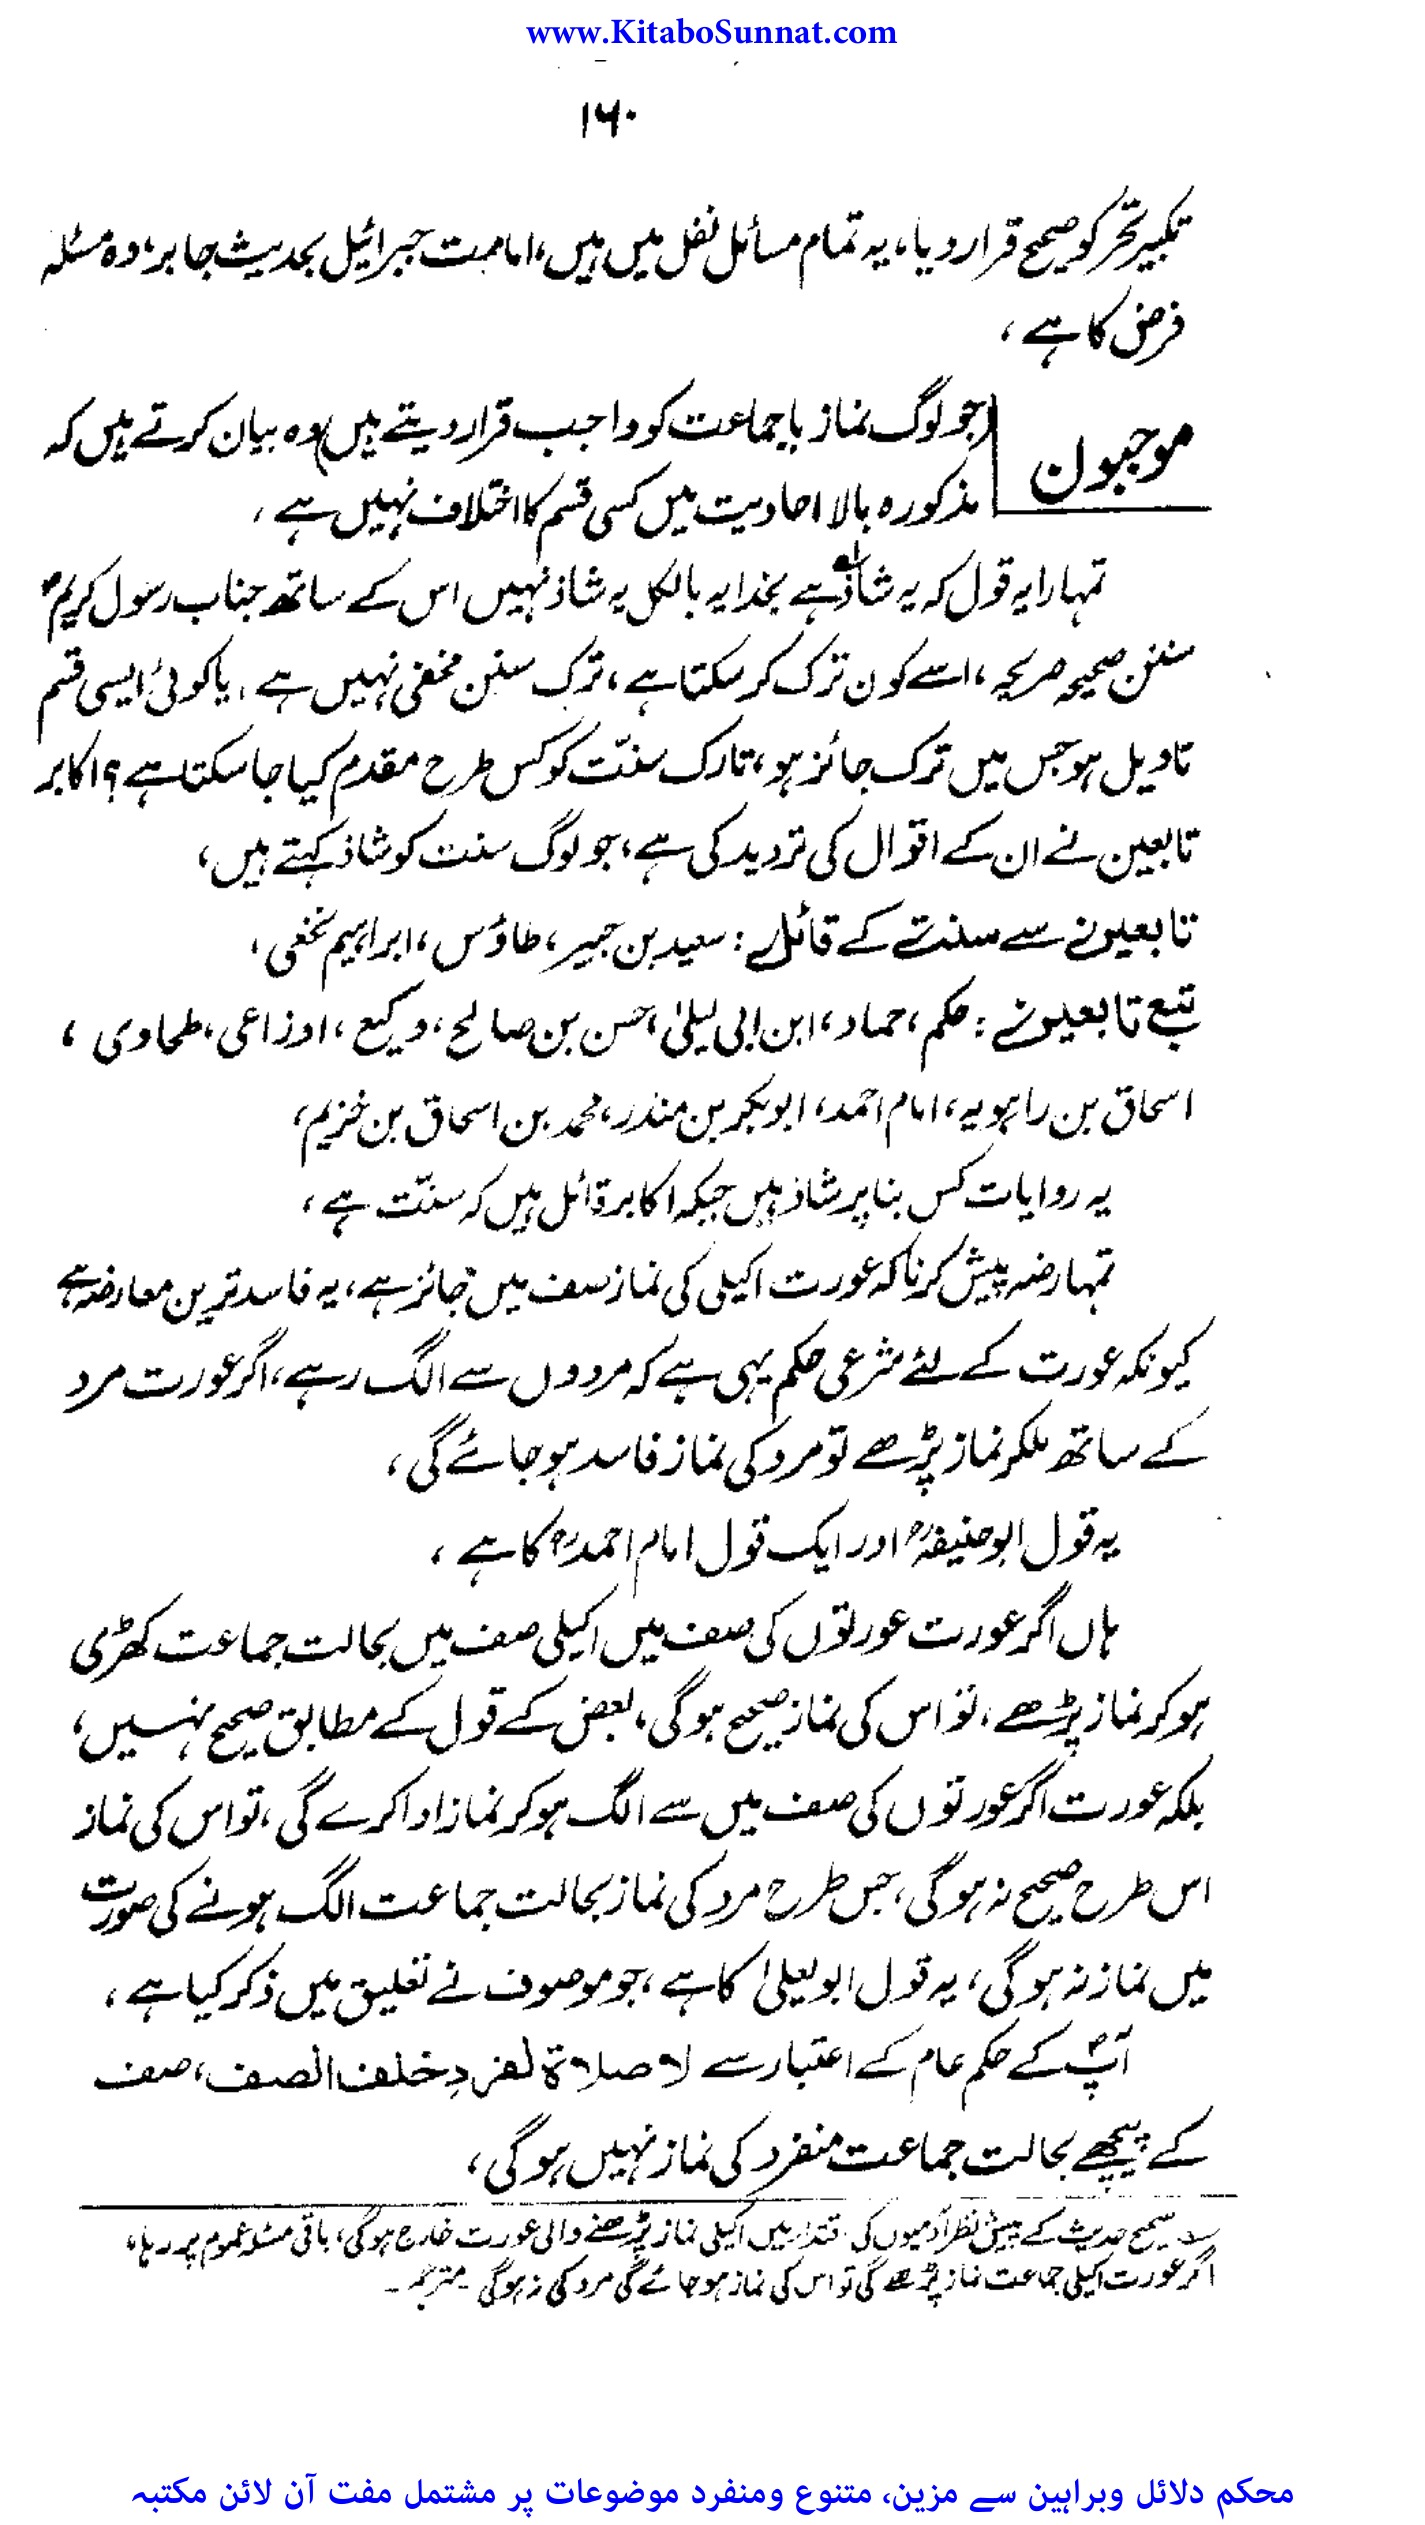 www.KitaboSunnat.com
۱۶۰
تکبیر تحر کو صحیح قرار دیا، یہ تمام مسائل نفل میں ہیں، امامت جبرائیل بحدیث جابر، وہ مسئلہ
فرض کا ہے،
موجبون (جو لوگ نماز باجماعت کو واجب قرار دیتے ہیں) وہ بیان کرتے ہیں کہ
مذکورہ بالا احادیث میں کسی قسم کا اختلاف نہیں ہے،
تمہارا یہ قول کہ یہ شاذ ہے بخدا یہ بالکل یہ شاذ نہیں اس کے ساتھ جناب رسول کریمؐ
سنن صحیحہ صریحہ، اسے کون ترک کر سکتا ہے، ترک سنن مخفی نہیں ہے، یا کوئی ایسی قسم
تاویل ہو جس میں ترک جائز ہو، تارک سنّت کو کس طرح مقدم کیا جا سکتا ہے؟ اکابر
تابعین نے ان کے اقوال کی تردید کی ہے، جو لوگ سنت کو شاذ کہتے ہیں،
تابعین سے سنت کے قائل: سعید بن جبیر، طاؤس، ابراہیم نخعی،
تبع تابعین: حکم، حماد، ابن ابی لیلیٰ، حسن بن صالح، وکیع، اوزاعی، طحاوی،
اسحاق بن راہویہ، امام احمد، ابوبکر بن منذر، محمد بن اسحاق بن خزیم،
یہ روایات کس بنا پر شاذ ہیں جبکہ اکابر قائل ہیں کہ سنّت ہے،
تمہارضہ پیش کرنا کہ عورت اکیلی کی نماز سف میں جائز ہے، یہ فاسد ترین معارضہ ہے
کیونکہ عورت کے لئے شرعی حکم یہی ہے کہ مردوں سے الگ رہے، اگر عورت مرد
کے ساتھ ملکر نماز پڑھے تو مرد کی نماز فاسد ہو جائے گی،
یہ قول ابو حنیفہؒ اور ایک قول امام احمدؒ کا ہے،
ہاں اگر عورت عورتوں کی صف میں اکیلی صف میں بحالت جماعت کھڑی
ہو کر نماز پڑھے، تو اس کی نماز صحیح ہو گی، بعض کے قول کے مطابق صحیح نہیں،
بلکہ عورت اگر عورتوں کی صف میں سے الگ ہو کر نماز ادا کرے گی، تو اس کی نماز
اس طرح صحیح نہ ہو گی، جس طرح مرد کی نماز بحالت جماعت الگ ہونے کی صورت
میں نماز نہ ہو گی، یہ قول ابو یعلیٰ کا ہے، جو موصوف نے تعلیق میں ذکر کیا ہے،
آپؐ کے حکم عام کے اعتبار سے لا صلاۃ لفردِ خلف الصف، صف
کے پیچھے بحالت جماعت منفرد کی نماز نہیں ہو گی،
صحیح حدیث کے پیش نظر آدمیوں کی اقتدا میں اکیلی نماز پڑھنے والی عورت خارج ہو گی، باقی مسئلہ عموم پر رہا،
اگر عورت اکیلی جماعت نماز پڑھے گی تو اس کی نماز ہو جائے گی مرد کی نہ ہو گی۔ مترجم۔
محکم دلائل وبراہین سے مزین، متنوع ومنفرد موضوعات پر مشتمل مفت آن لائن مکتبہ